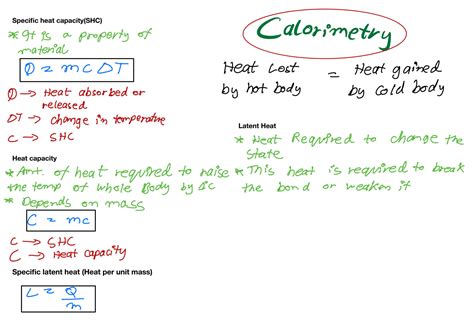 Specific heat capacity(SHC)
* It is a property of
material
Q = mcDT
Q → Heat absorbed or
released
DT → change in temperature
C → SHC
Heat capacity
* Amt. of heat required to raise
the temp of whole Body by 1°C
* Depends on mass
C = mc
C → SHC
C → Heat capacity
Specific latent heat (Heat per unit mass)
L = Q/m
Calorimetry
Heat Lost = Heat gained
by hot body by Cold body
Latent Heat
* Heat Required to change the
State
* This heat is required to break
the bond or weaken it